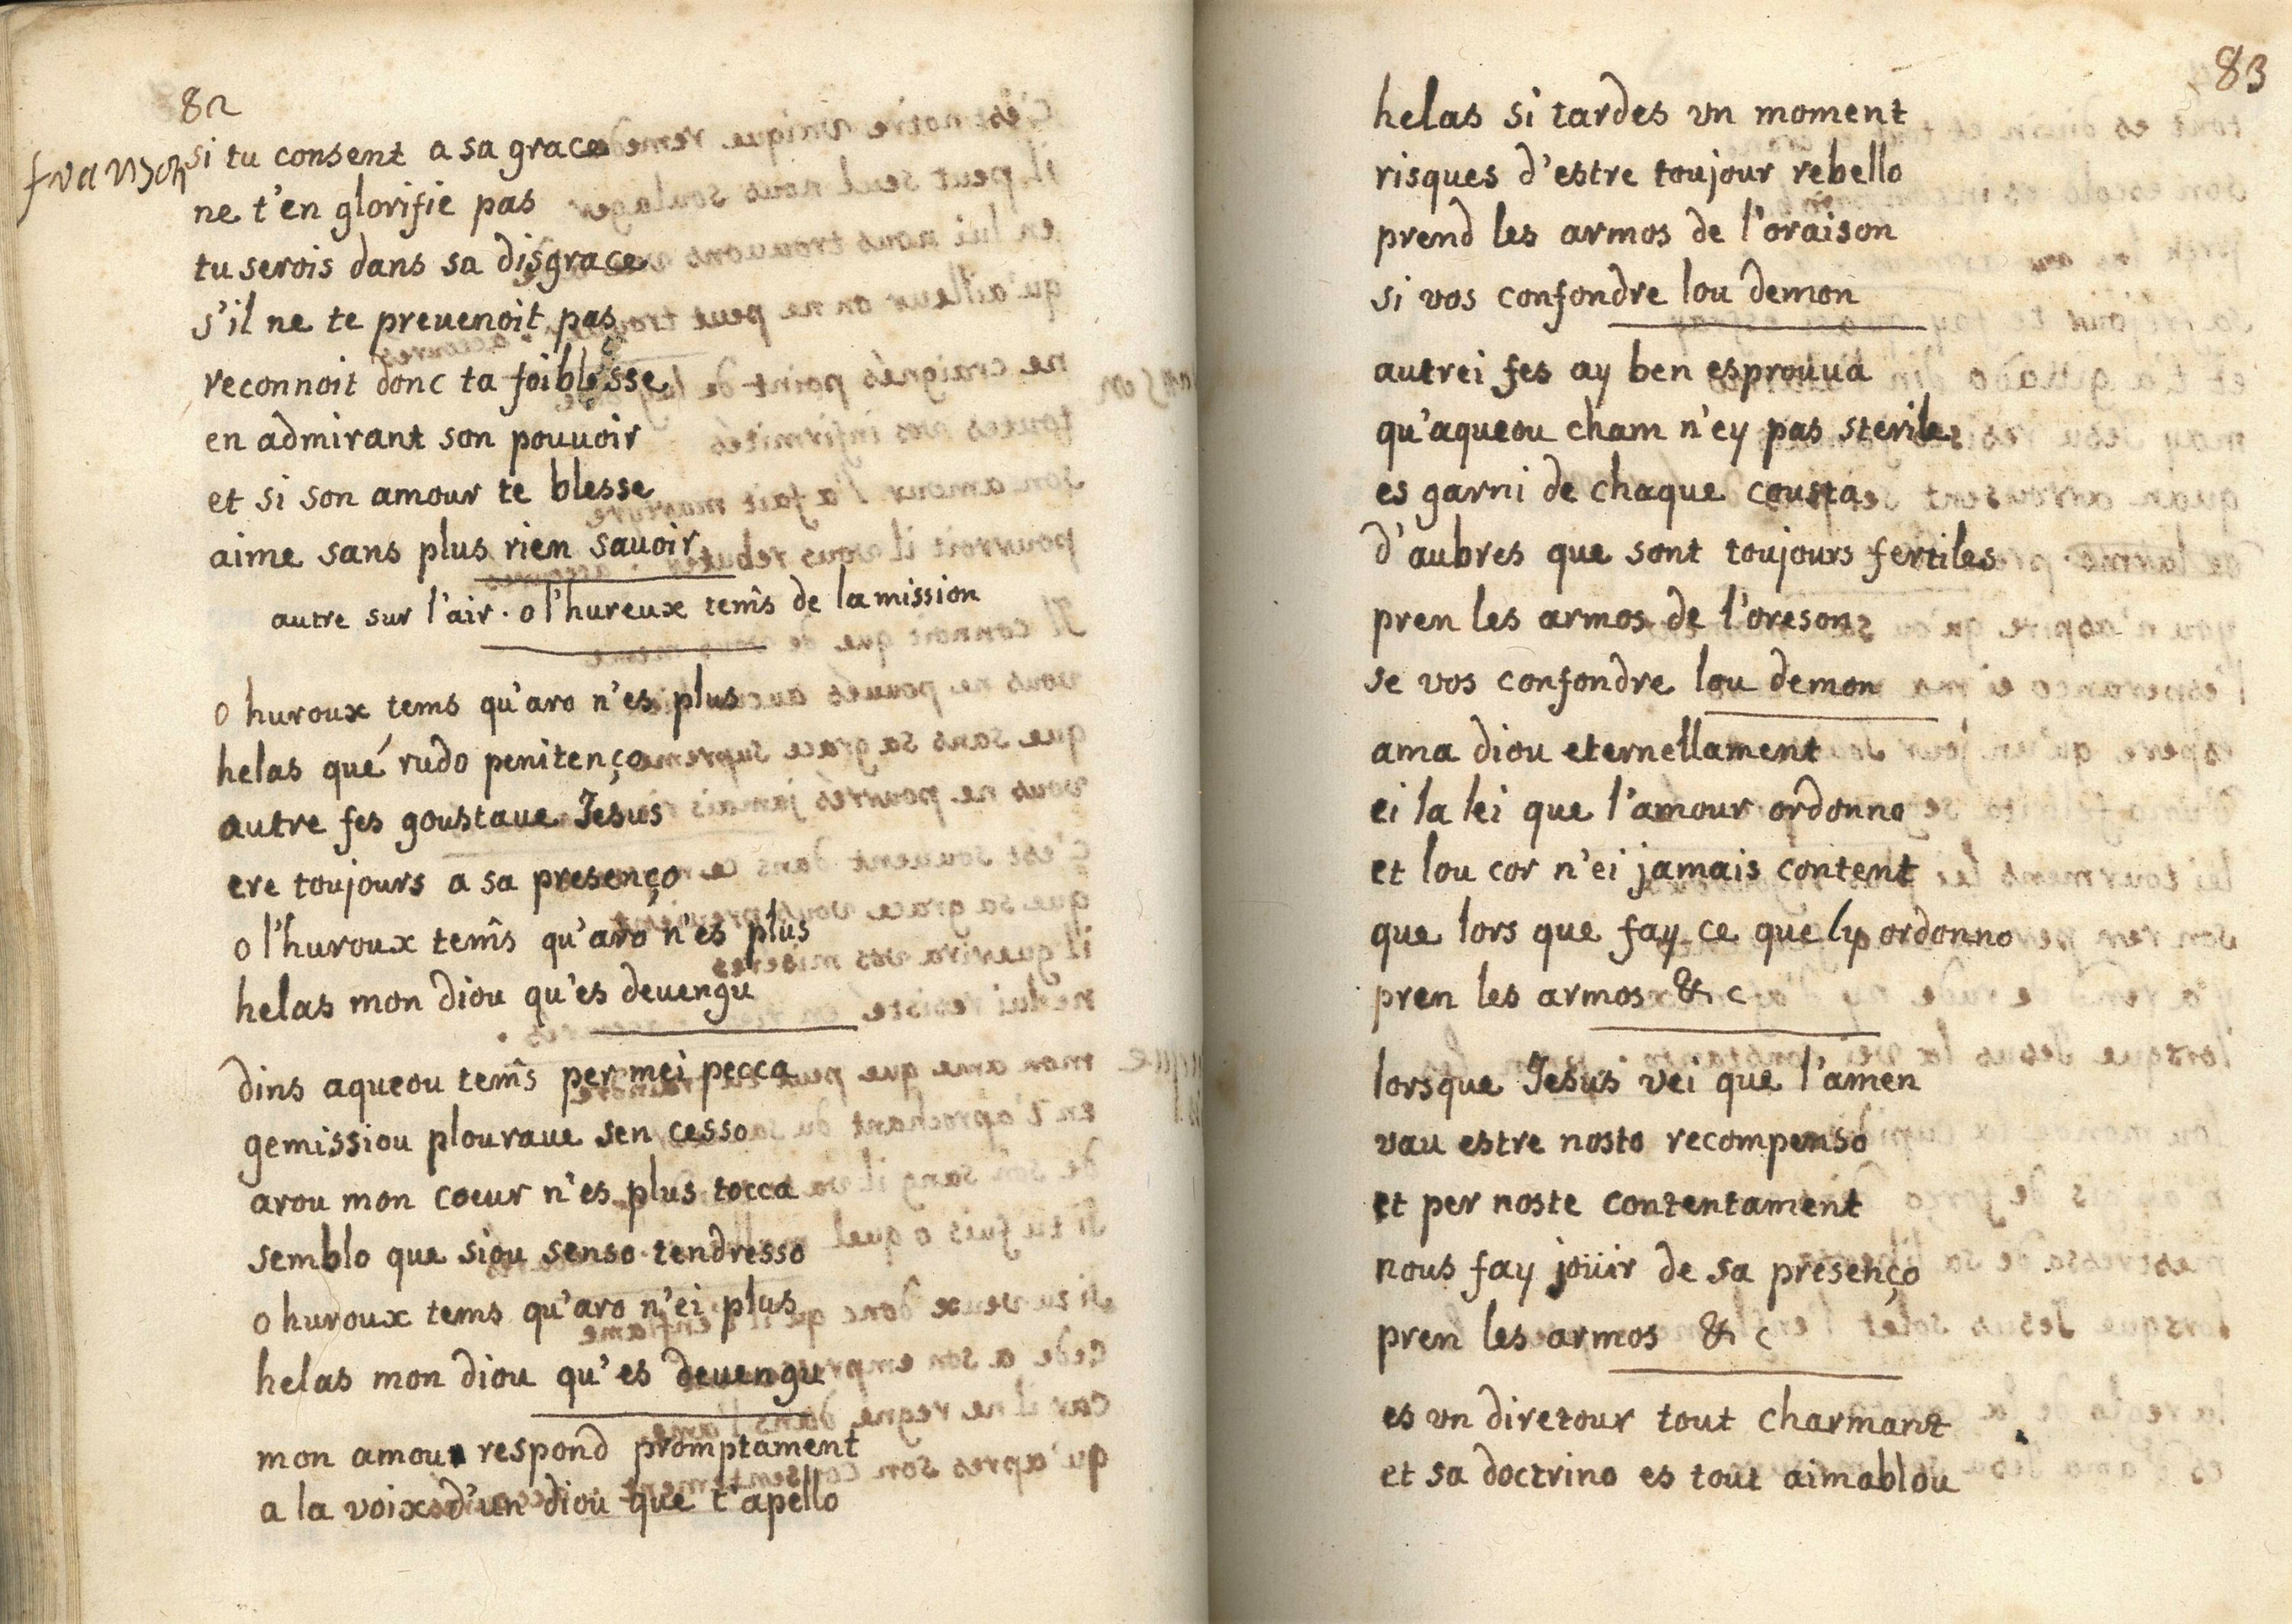 82
si tu consent a sa grace
ne t'en glorifie pas
tu serois dans sa disgrace
s'il ne te preuenoit pas
reconnoit donc ta foiblesse
en admirant son pouuoir
et si son amour te blesse
aime sans plus rien sauoir
autre sur l'air. o l'hureux tem̂s de la mission
o huroux tems qu'aro n'es plus
helas qué rudo penitenço
autre fes goustaue Jesus
ere toujours a sa presenço
o l'huroux tem̂s qu'aro n'es plus
helas mon diou qu'es deuengu
dins aqueou tem̂s per mei pecca
gemissiou plouraue sen cesso
arou mon coeur n'es plus tocca
semblo que siou senso tendresso
o huroux tems qu'aro n'ei plus
helas mon diou qu'es deuengu
mon amour respond promptament
a la voix d'un diou que t'apello
83
helas si tardes vn moment
risques d'estre toujour rebello
prend les armos de l'oraison
si vos confondre lou demon
autrei fes ay ben esprouua
qu'aqueou cham n'ey pas sterile
es garni de chaque cousta
d'aubres que sont toujours fertiles
pren les armos de l'oreson
se vos confondre lou demon
ama diou eternellament
ei la lei que l'amour ordonno
et lou cor n'ei jamais content
que lors que fay ce que ly ordonno
pren les armos & c
lorsque Jesus vei que l'amen
vau estre nosto recompenso
et per noste contentament
nous fay joüir de sa presenço
pren les armos & c
es vn diretour tout charmant
et sa doctrino es tout aimablou